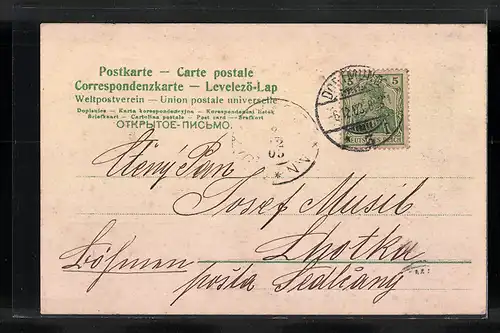 Postkarte — Carte postale
Correspondenzkarte — Levelező-Lap
Weltpostverein — Union postale universelle
Dopisnice — Karta korespondencyjna — Korespondenční lístek
Briefkaart — Cartolina postale — Post card — Brefkort
ОТКРЫТОЕ-ПИСЬМО.
5
DORTMUND
DEUTSCHES REICH
Ctěný Pan
Josef Musil
Lhotka
Böhmen
pošta Sedlčany